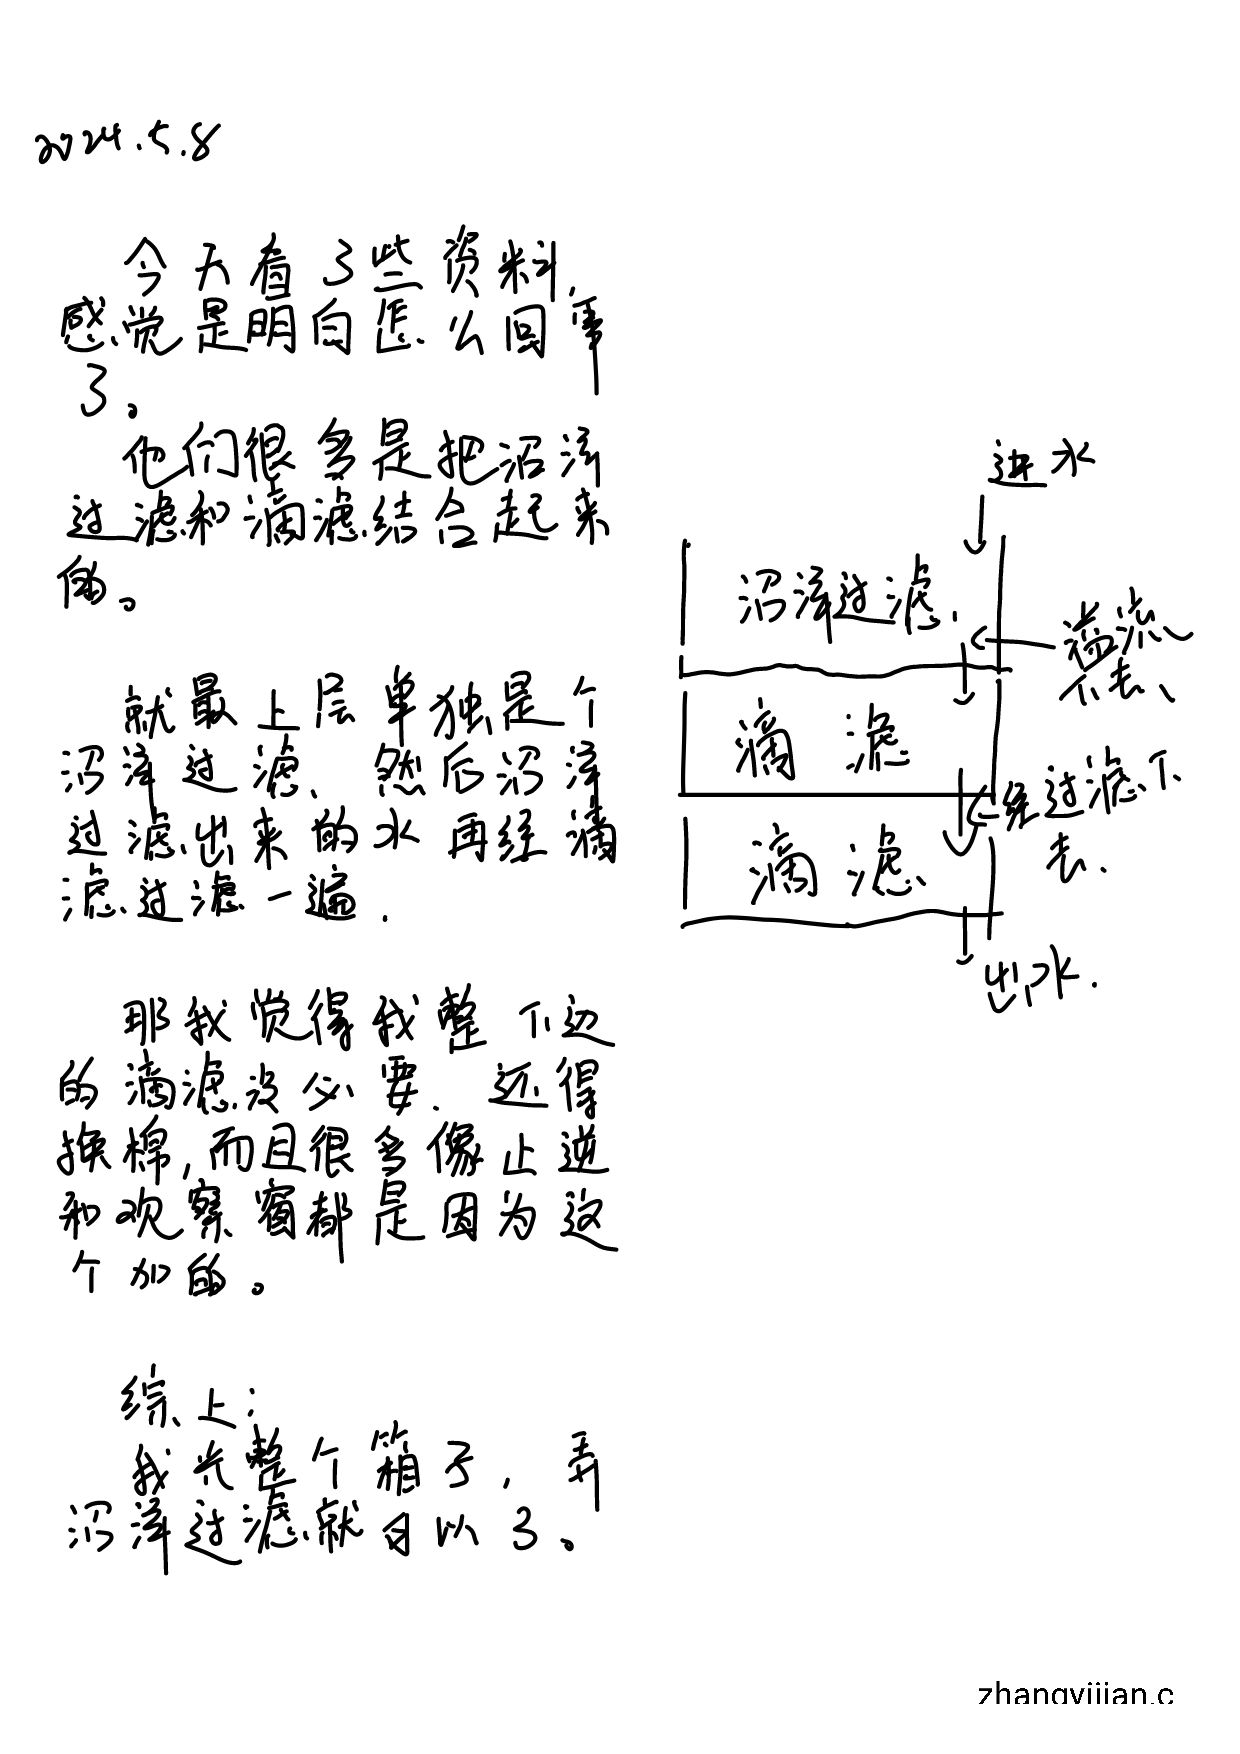 2024.5.8
今天看了些资料,
感觉是明白怎么回事
了。
他们很多是把沼泽
过滤和滴滤结合起来
的。
就最上层单独是个
沼泽过滤、然后沼泽
过滤出来的水再经滴
滤过滤一遍.
那我觉得我整下边
的滴滤没必要. 还得
换棉,而且很多像止逆
和观察窗都是因为这
个加的。
综上:
我光整个箱子,弄
沼泽过滤就可以了。
进水
沼泽过滤.
溢流
下去、
滴滤
经过滤下
去.
滴滤
出水.
zhangyijian.c